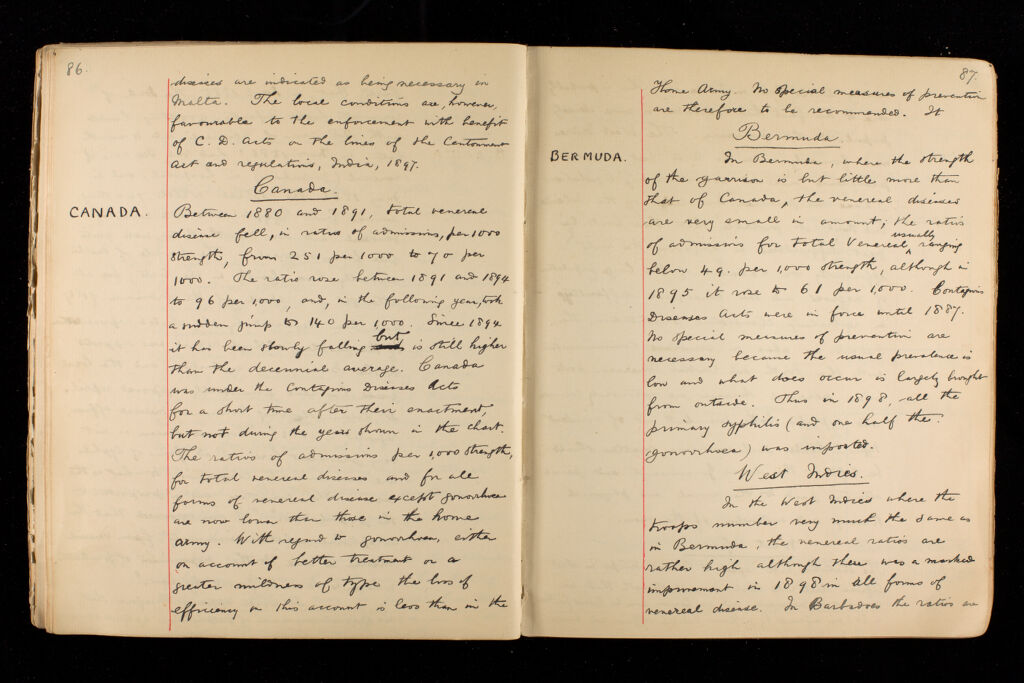 86.
diseases are indicated as being necessary in
Malta. The local conditions are, however,
favourable to the enforcement with benefit
of C. D. Acts on the lines of the Cantonment
Act and regulations, India, 1897.
Canada.
CANADA.
Between 1880 and 1891, total venereal
disease fell, in ratios of admissions, per 1000
strength, from 251 per 1000 to 70 per
1000. The ratio rose between 1891 and 1894
to 96 per 1,000, and, in the following year, took
a sudden jump to 140 per 1,000. Since 1894
it has been slowly falling but is still higher
than the decennial average. Canada
was under the Contagious Diseases Acts
for a short time after their enactment,
but not during the years shown in the chart.
The ratios of admissions per 1,000 strength,
for total venereal diseases and for all
forms of venereal disease except gonorrhoea
are now lower than those in the home
army. With regard to gonorrhoea, either
on account of better treatment or a
greater mildness of type the loss of
efficiency on this account is less than in the
87.
Home Army. No special measures of prevention
are therefore to be recommended.
Bermuda.
BERMUDA.
In Bermuda, where the strength
of the garrison is but little more than
that of Canada, the venereal diseases
are very small in amount; the ratios
of admissions for total venereal, usually ranging
below 49. per 1,000 strength, although in
1895 it rose to 61 per 1,000. Contagious
Diseases Acts were in force until 1887.
No special measures of prevention are
necessary because the usual prevalence is
low and what does occur is largely brought
from outside. Thus in 1898, all the
primary syphilis (and one half the
gonorrhoea) was imported.
West Indies.
In the West Indies where the
troops number very much the same as
in Bermuda, the venereal ratios are
rather high although there was a marked
improvement in 1898 in all forms of
venereal disease. In Barbadoes the ratios are